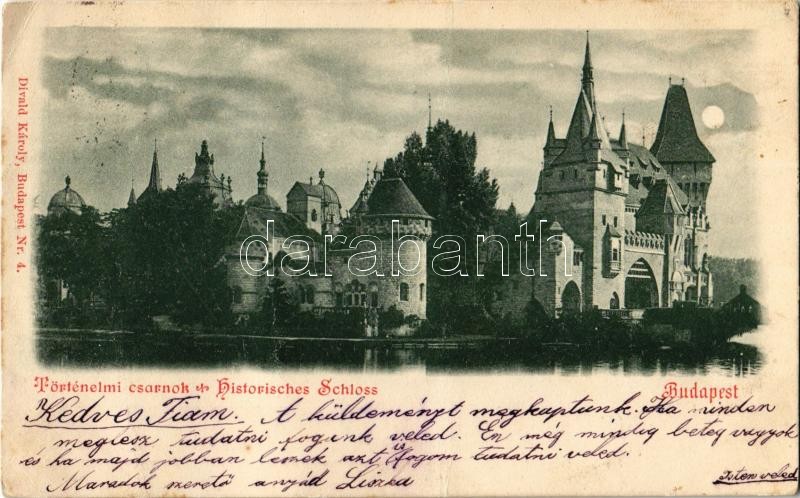 Divald Károly, Budapest Nr. 4.
darabanth
Történelmi csarnok Historisches Schloss
Budapest
Kedves Fiam. A küldeményt megkaptunk. Ha minden
meglesz tudatni fogunk veled. Én még mindig beteg vagyok
és ha majd jobban leszek azt is fogom tudatni veled.
Maradok szerető anyád Liszka
Isten veled